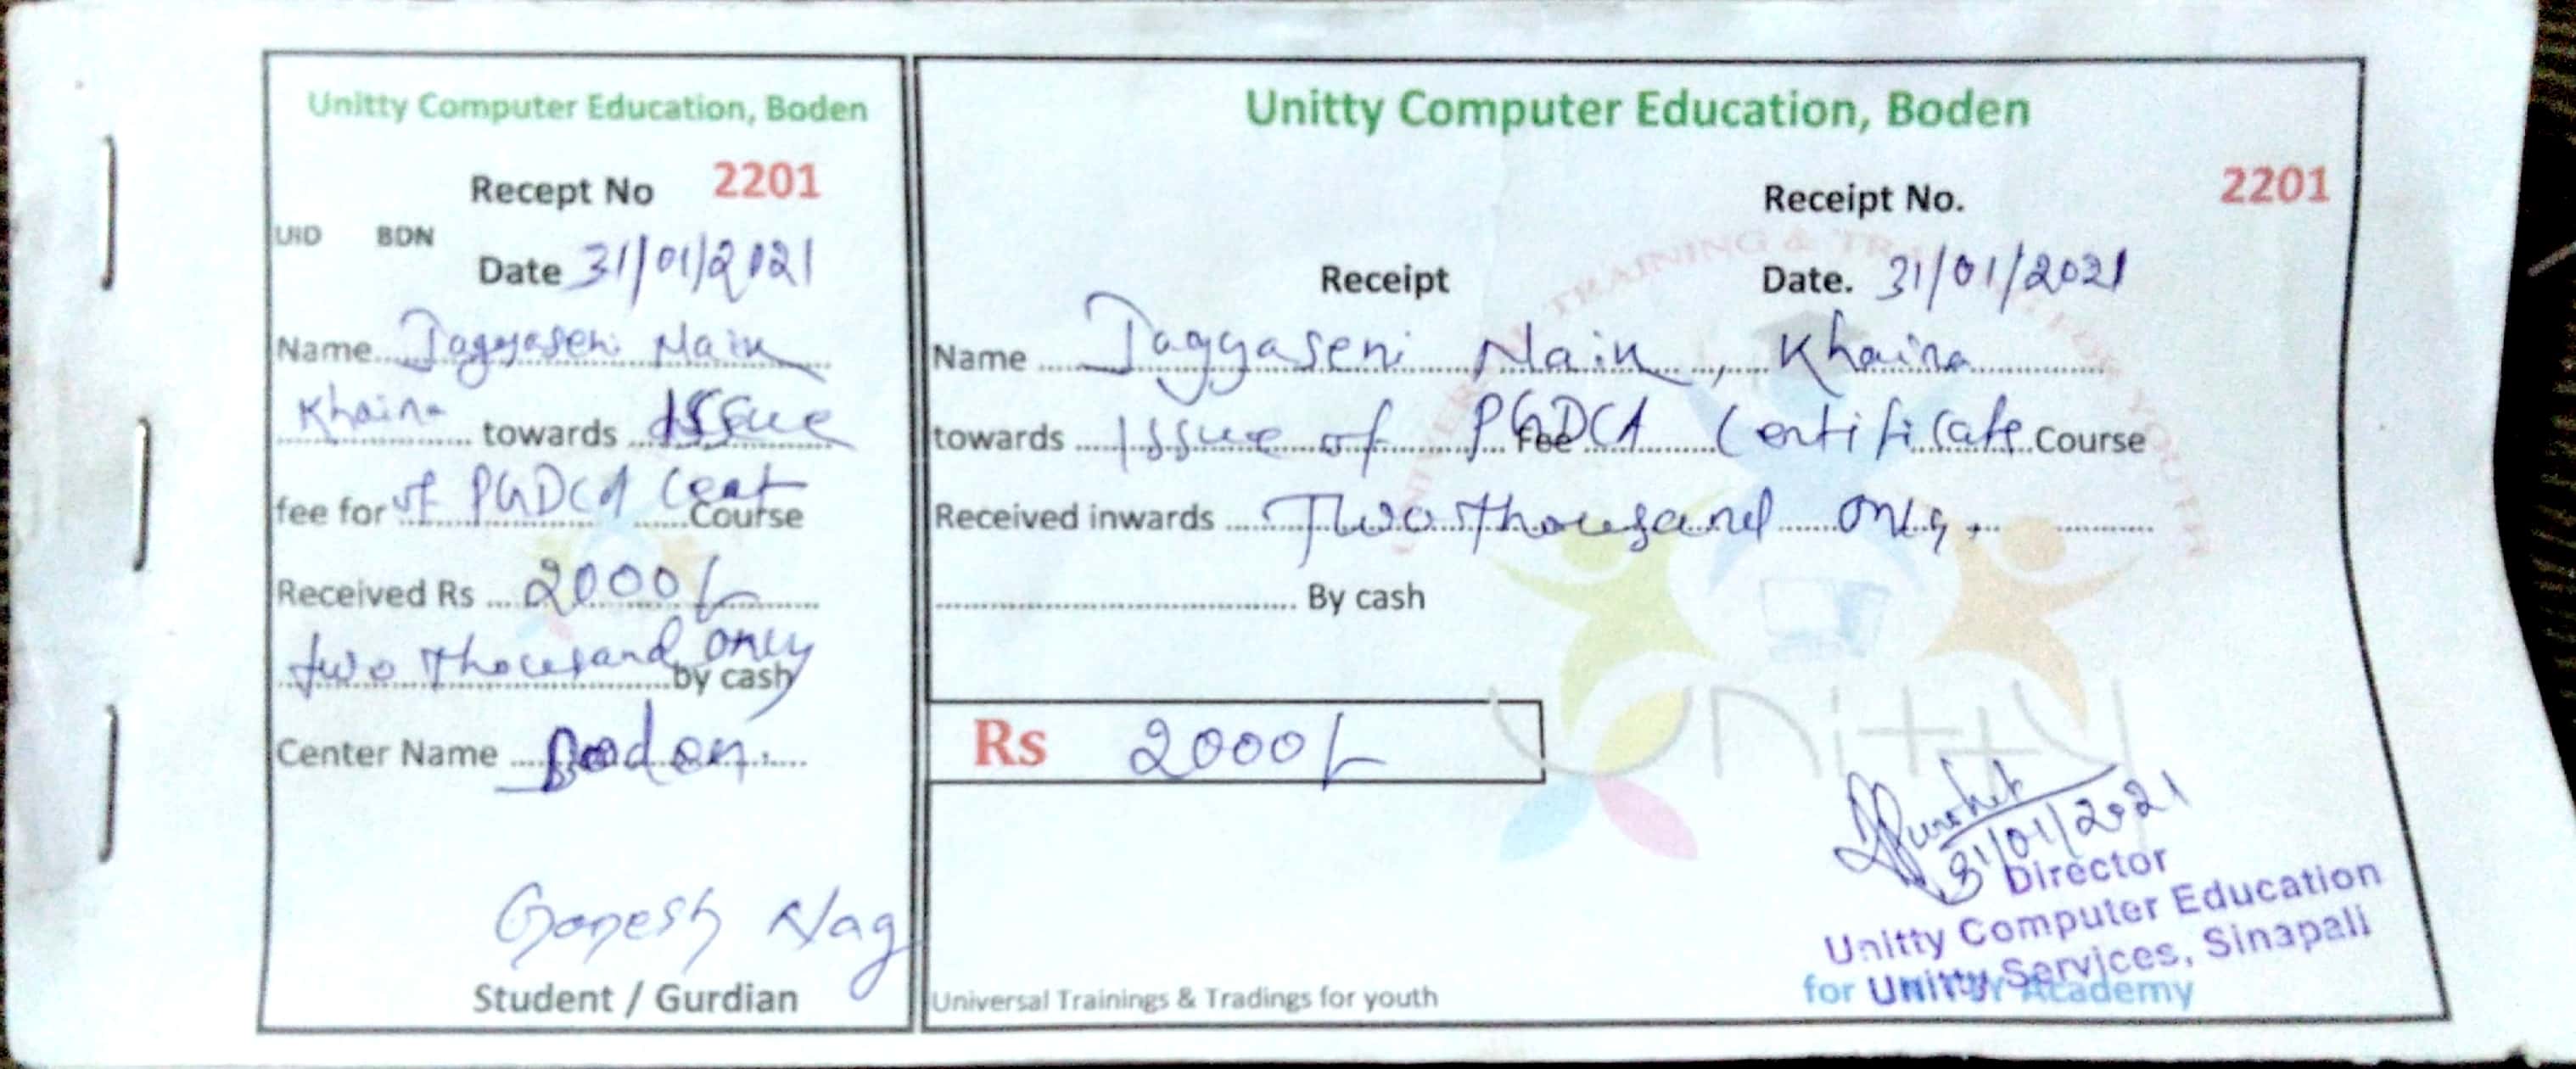 Unitty Computer Education, Boden
Recept No 2201
UID BDN
Date 31/01/2021
Name Jaggaseni Naik
Khaira towards Issue
fee for of PGDCA Cert Course
Received Rs 2000/-
two thousand only by cash
Center Name Boden.
Ganesh Nag
Student / Gurdian
Unitty Computer Education, Boden
Receipt No. 2201
Receipt Date. 31/01/2021
Name Jaggaseni Naik, Khaira
towards Issue of PGDCA Fee Certificate Course
Received inwards Two thousand only.
By cash
Rs 2000/-
31/01/2021
Director
Unitty Computer Education
Unitty Services, Sinapali
for UNITTY Academy
Universal Trainings & Tradings for youth
Unitty